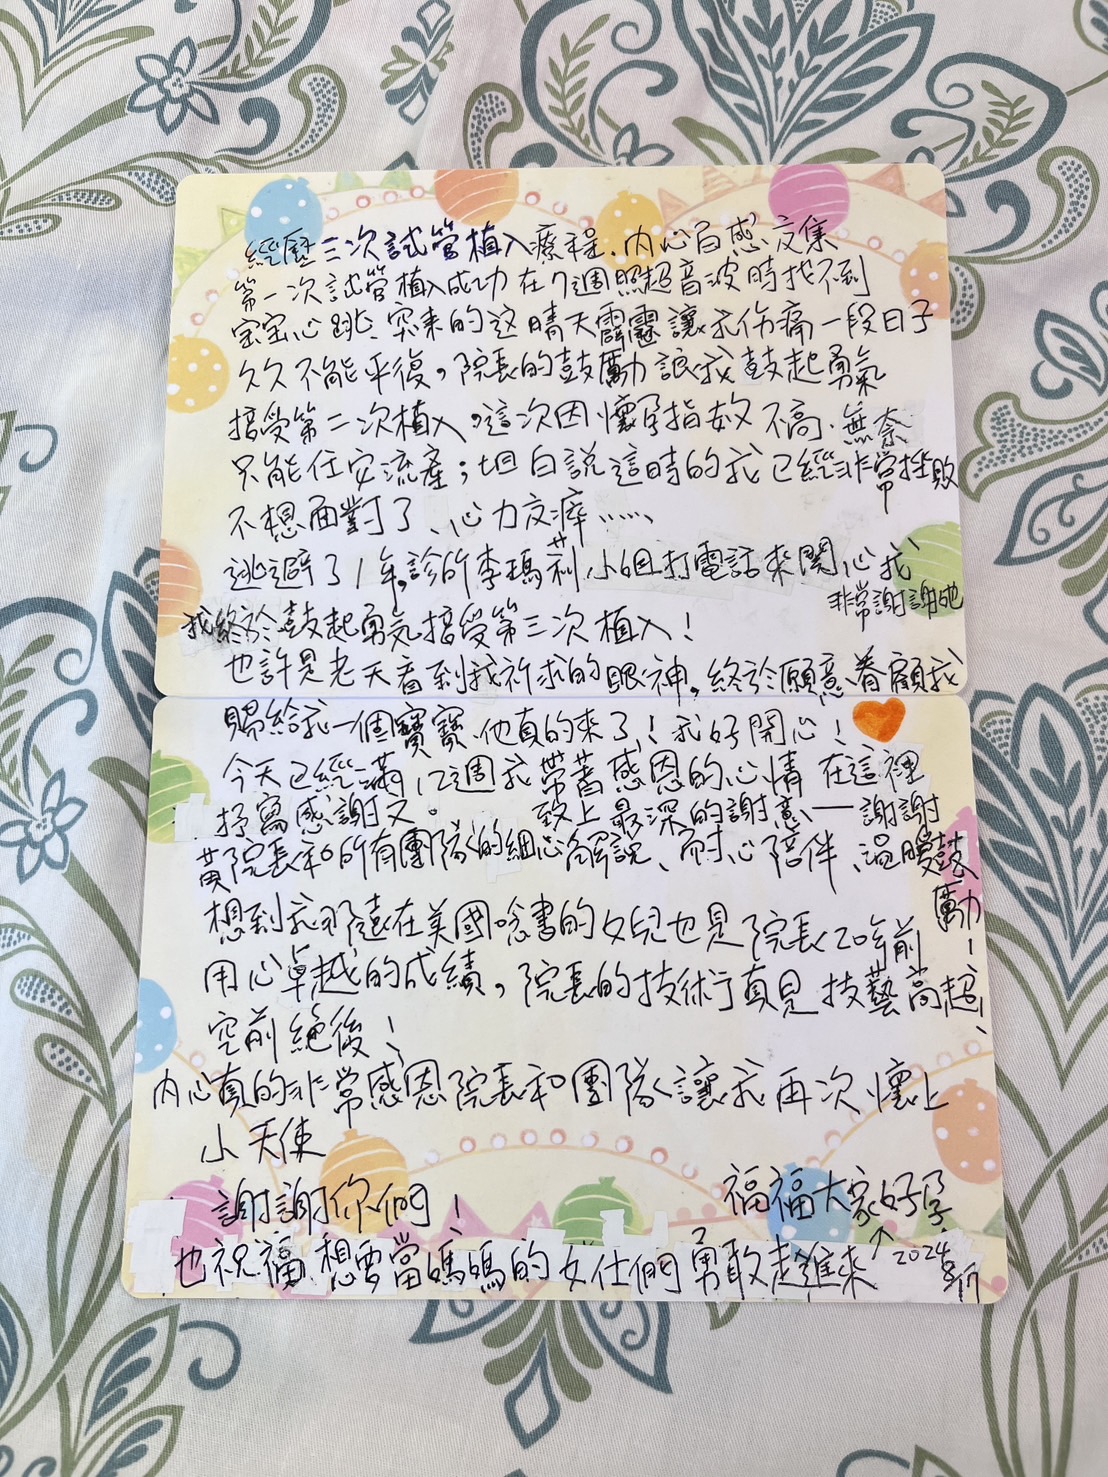 經歷三次試管植入療程、內心百感交集
第一次試管植入成功在7週照超音波時找不到
宝宝心跳、突來的这晴天霹靂讓我伤痛一段日子
久久不能平復。院長的鼓勵讓我鼓起勇氣
接受第二次植入。這次因懷孕指数不高、無奈
只能任安流產；坦白説這時的我已經非常挫敗
不想面對了、心力交瘁……
逃避了1年。診所李瑪莉小姐打電話來関心我
非常謝謝她
我終於鼓起勇氣接受第三次植入！
也許是老天看到我祈求的眼神，終於願意眷顧我
賜給我一個寶寶、他真的來了！我好開心！
今天已經滿12週我帶著感恩的心情在這裡
抒寫感謝文。致上最深的謝意——謝謝
黃院長和所有團隊的細心解說、耐心陪伴、温暖鼓
勵！
想到我那遠在美國唸書的女兒也是院長20年前
用心卓越的成績。院長的技術行真是技藝高超、
空前絕後！
內心真的非常感恩院長和團隊讓我再次懷上
小天使
謝謝你們！
福福大家好孕
也祝福、想要當媽媽的女仕們勇敢走進來↗
2024